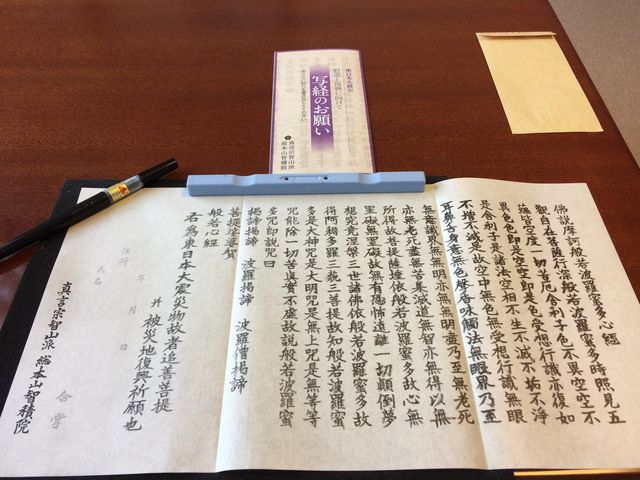 東日本大震災
写経のお願い
真言宗智山派
総本山智積院
佛説摩訶般若波羅蜜多心經
觀自在菩薩行深般若波羅蜜多時照見五
蘊皆空度一切苦厄舎利子色不異空空不
異色色即是空空即是色受想行識亦復如
是舎利子是諸法空相不生不滅不垢不淨
不增不減是故空中無色無受想行識無眼
耳鼻舌身意無色聲香味觸法無眼界乃至
無意識界無無明亦無無明盡乃至無老死
亦無老死盡無苦集滅道無智亦無得以無
所得故菩提薩埵依般若波羅蜜多故心無
罣礙無罣礙故無有恐怖遠離一切顛倒夢
想究竟涅槃三世諸佛依般若波羅蜜多故
得阿耨多羅三藐三菩提故知般若波羅蜜
多是大神咒是大明咒是無上咒是無等等
咒能除一切苦眞實不虛故説般若波羅蜜
多咒即説咒曰
揭諦揭諦 波羅揭諦 波羅僧揭諦
菩提娑婆賀
般若心經
右為東日本大震災物故者追善菩提
并被災地復興祈願也
年 月 日
住所
氏名 合掌
真言宗智山派 総本山智積院